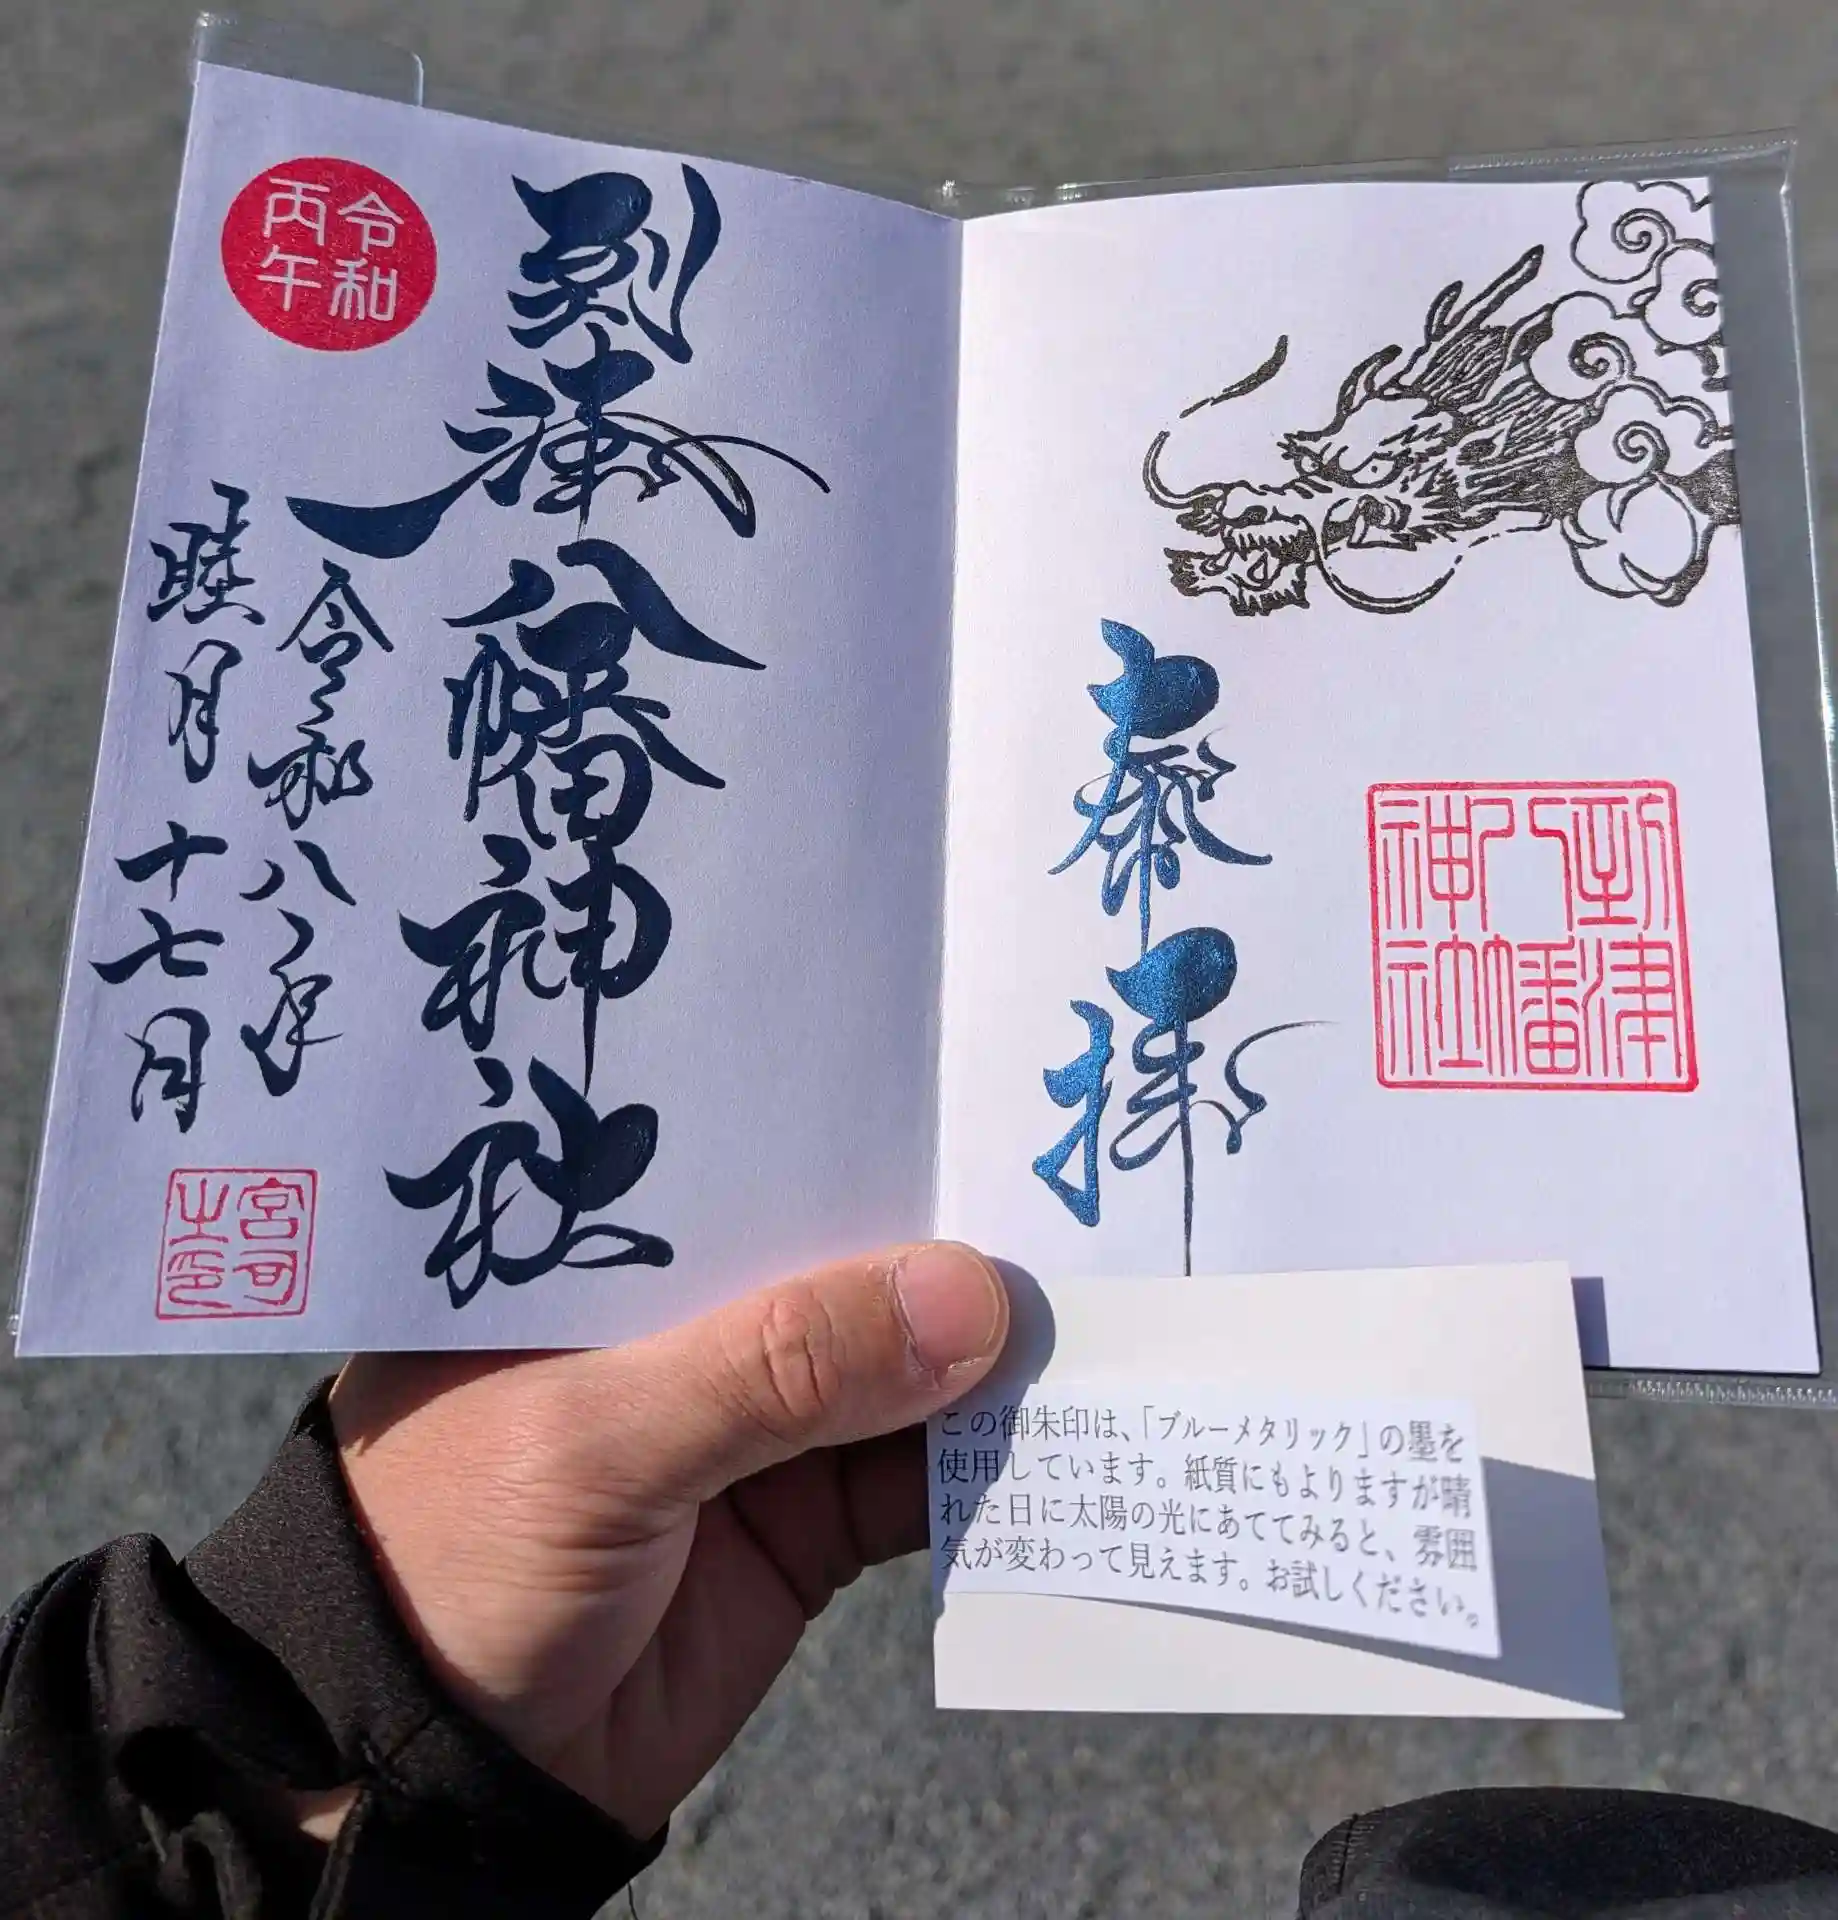 到津
八幡
神社
奉拝
到津八幡神社
令和
丙午
令和八年
睦月十七日
宮司
之印
この御朱印は、「ブルーメタリック」の墨を
使用しています。紙質にもよりますが晴
れた日に太陽の光にあててみると、雰囲
気が変わって見えます。お試しください。